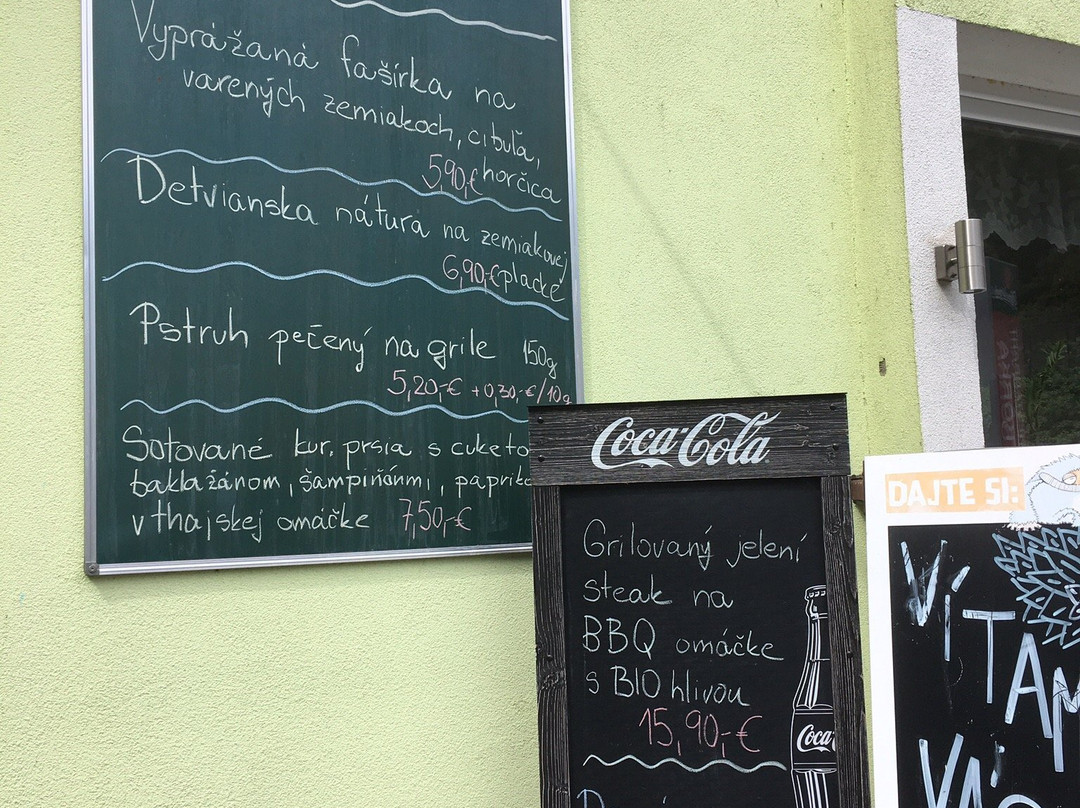 Vyprážaná fašírka na
varených zemiakoch, cibuľa,
5,90,-€ horčica
Detvianska nátura na zemiakovej
6,90,-€ placke
Pstruh pečený na grile 150g
5,20,-€ +0,30,-€/10g
Sotované kur. prsia s cuketo
baklažánom, šampiňónmi, papriko
v thajskej omáčke 7,50,-€
Coca-Cola
Grilovaný jelení
steak na
BBQ omáčke
s BIO hlivou
15,90,-€
Coca
DAJTE SI:
VÍTAM
VÁ